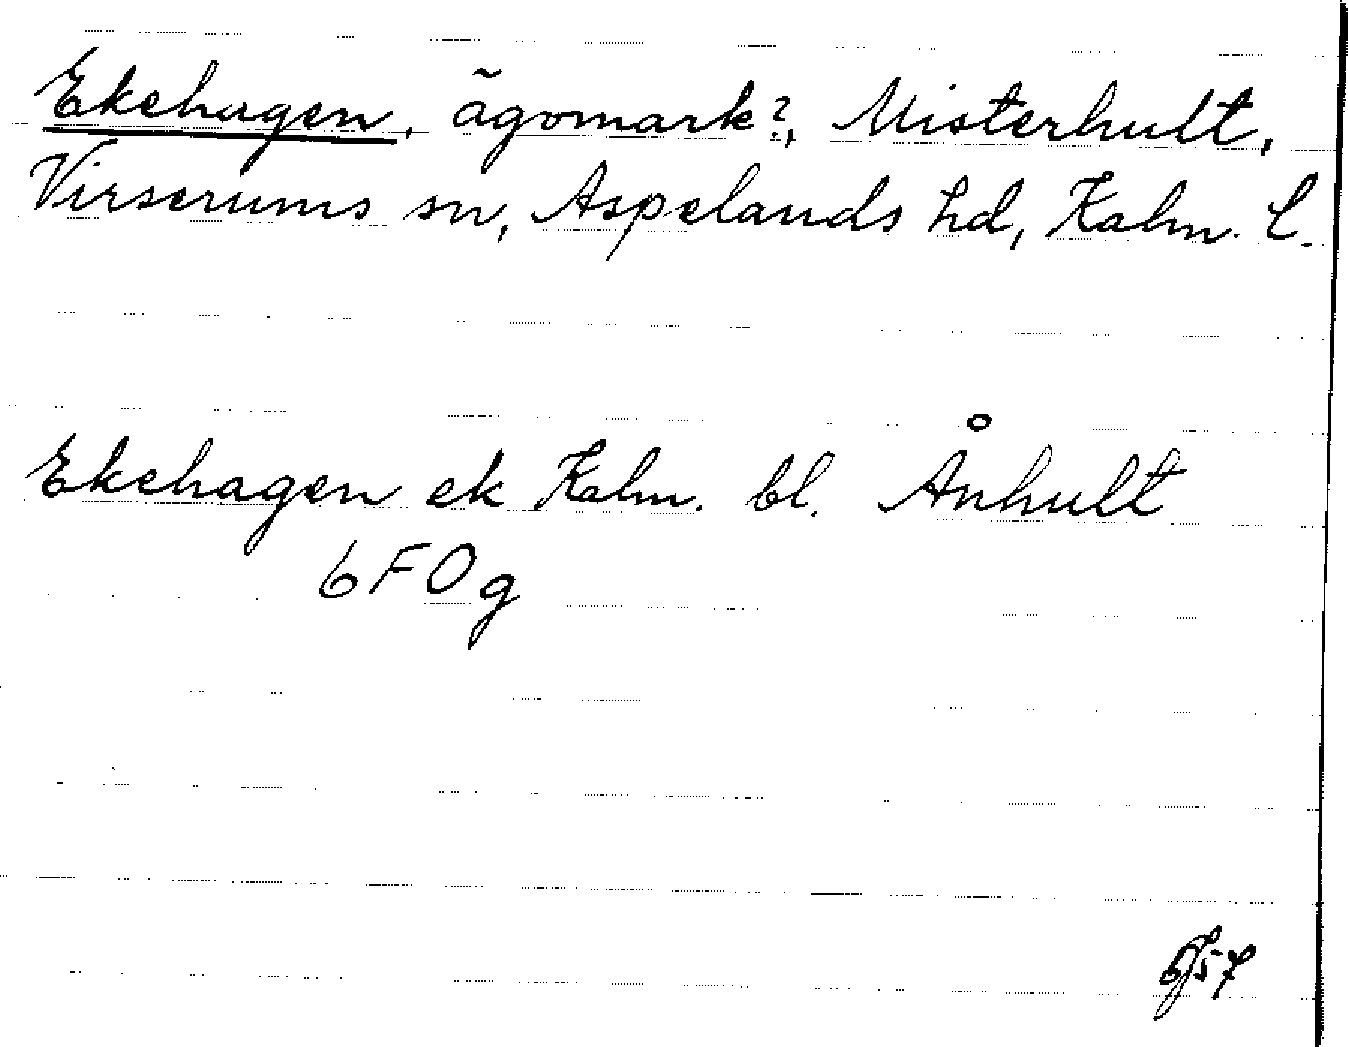 Ekehagen, ägomark?, Misterhult,
Virserums sn, Aspelands hd, Kalm. l.
Ekehagen ek Kalm. bl. Ånhult
6F0g